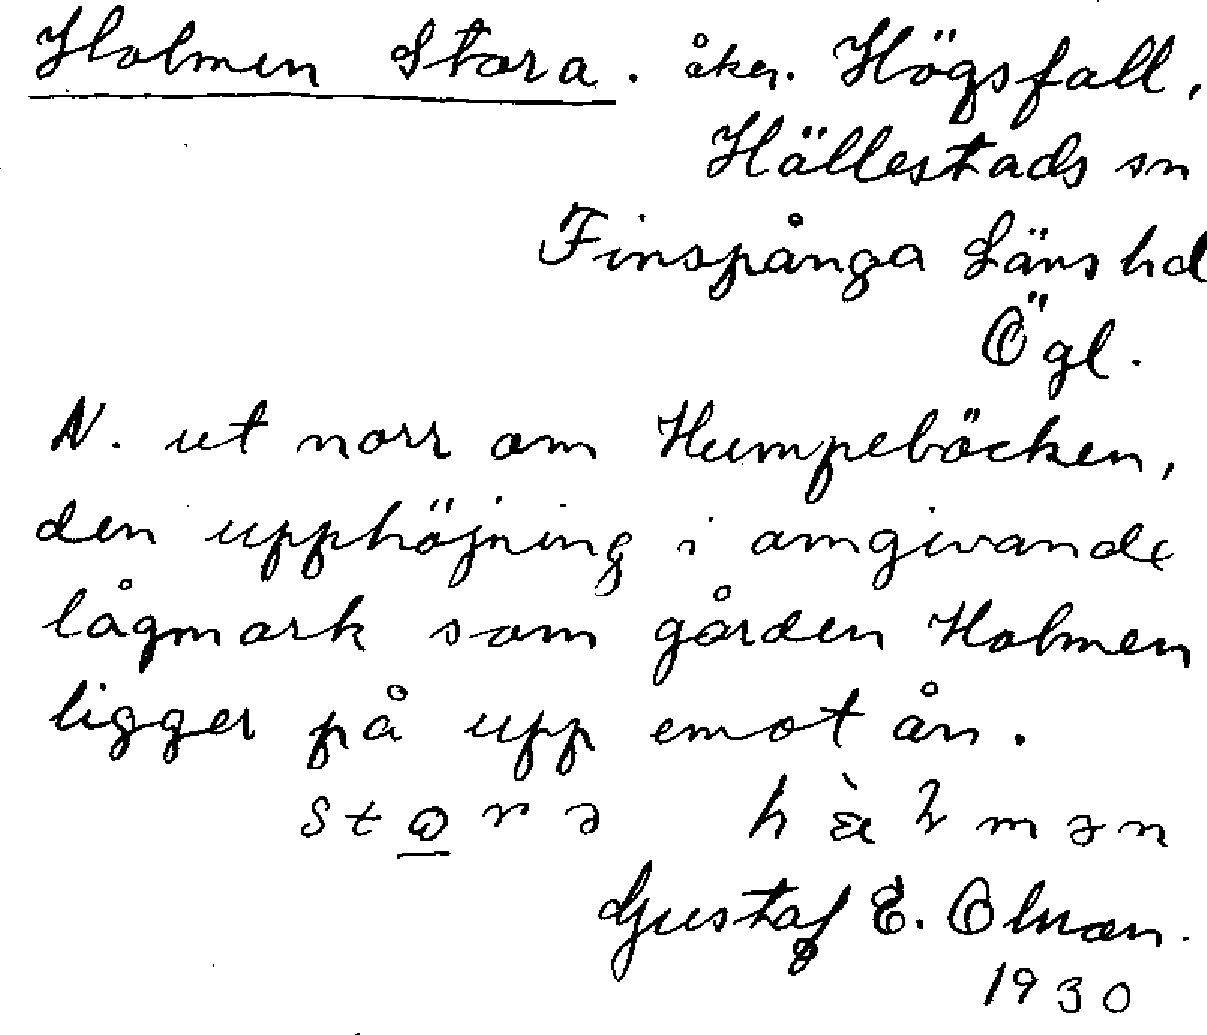 Holmen Stora. åker. Högsfall,
Hällestads sn
Finspånga Läns hd
Ögl.
N. ut norr om Humpebäcken,
den upphöjning i omgivande
lågmark som gården Holmen
ligger på upp emot ån.
Gustaf E. Olman.
1930